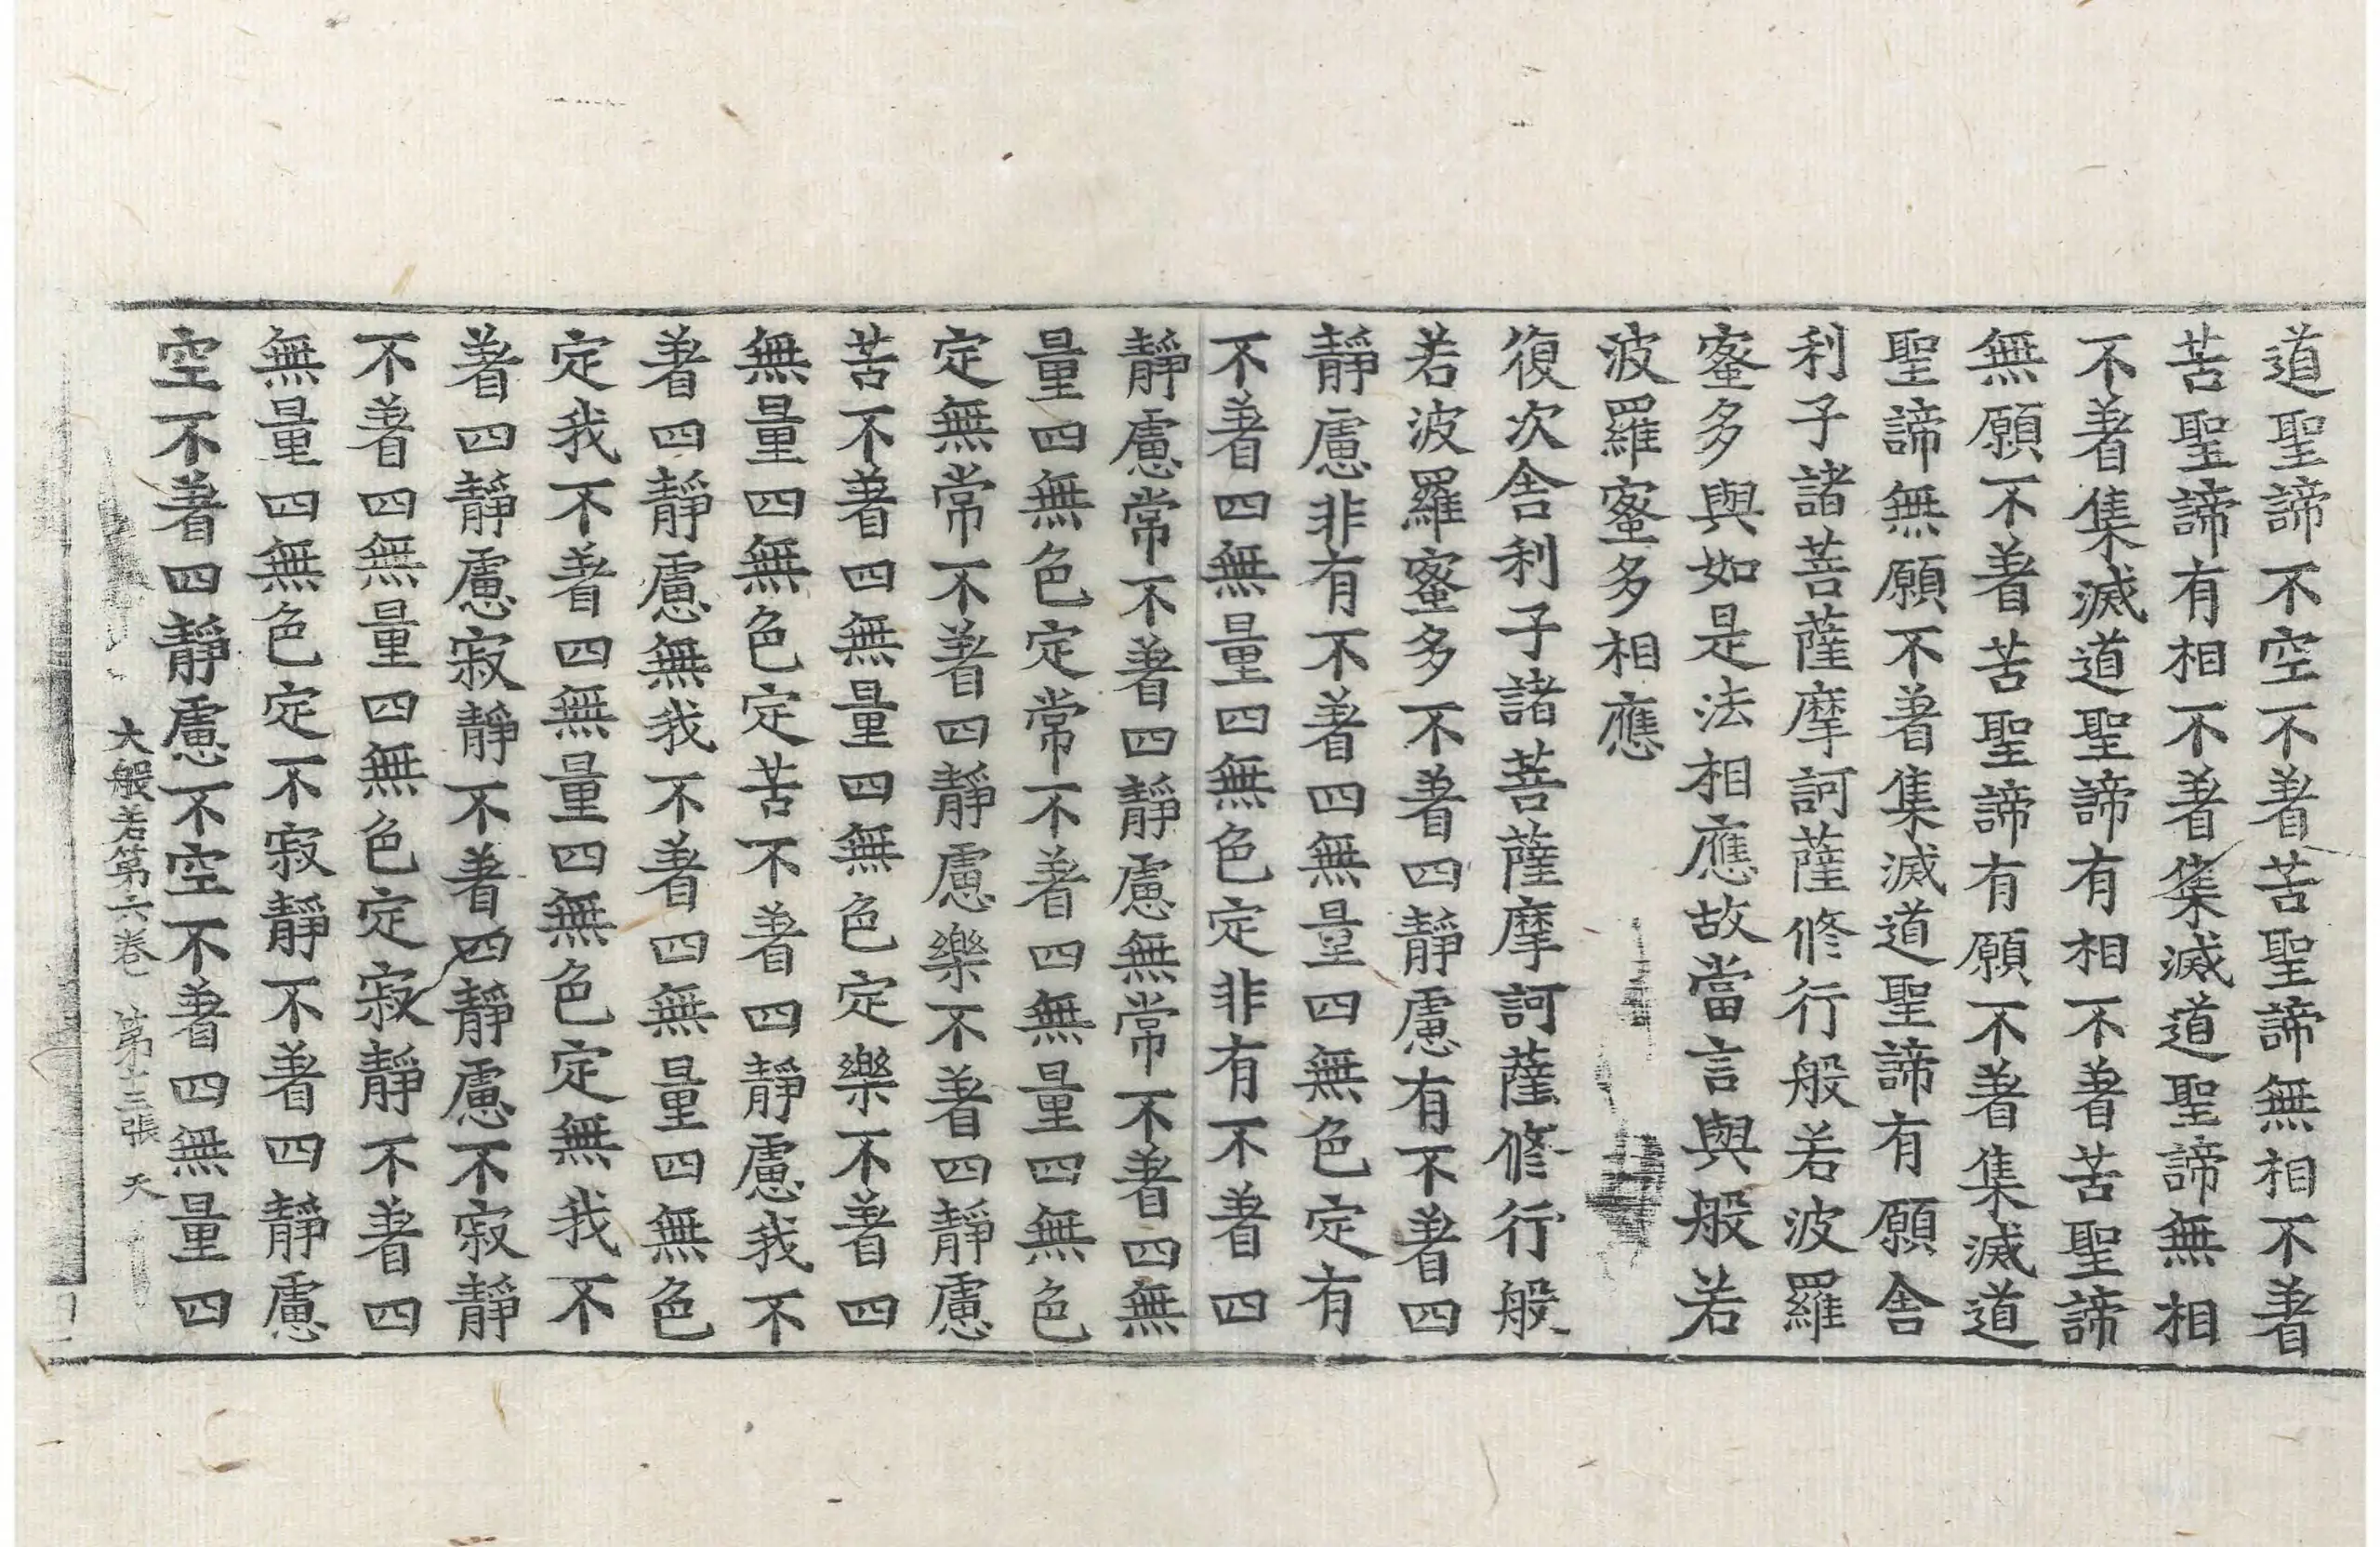 道聖諦不空不著苦聖諦無相不著
苦聖諦有相不著集滅道聖諦無相
不著集滅道聖諦有相不著苦聖諦
無願不著苦聖諦有願不著集滅道
聖諦無願不著集滅道聖諦有願舍
利子諸菩薩摩訶薩修行般若波羅
蜜多與如是法相應故當言與般若
波羅蜜多相應
復次舍利子諸菩薩摩訶薩修行般
若波羅蜜多不著四靜慮有不著四
靜慮非有不著四無量四無色定有
不著四無量四無色定非有不著四
靜慮常不著四靜慮無常不著四無
量四無色定常不著四無量四無色
定無常不著四靜慮樂不著四靜慮
苦不著四無量四無色定樂不著四
無量四無色定苦不著四靜慮我不
著四靜慮無我不著四無量四無色
定我不著四無量四無色定無我不
著四靜慮寂靜不著四靜慮不寂靜
不著四無量四無色定寂靜不著四
無量四無色定不寂靜不著四靜慮
空不著四靜慮不空不著四無量四
大般若第六卷 第十三張 天